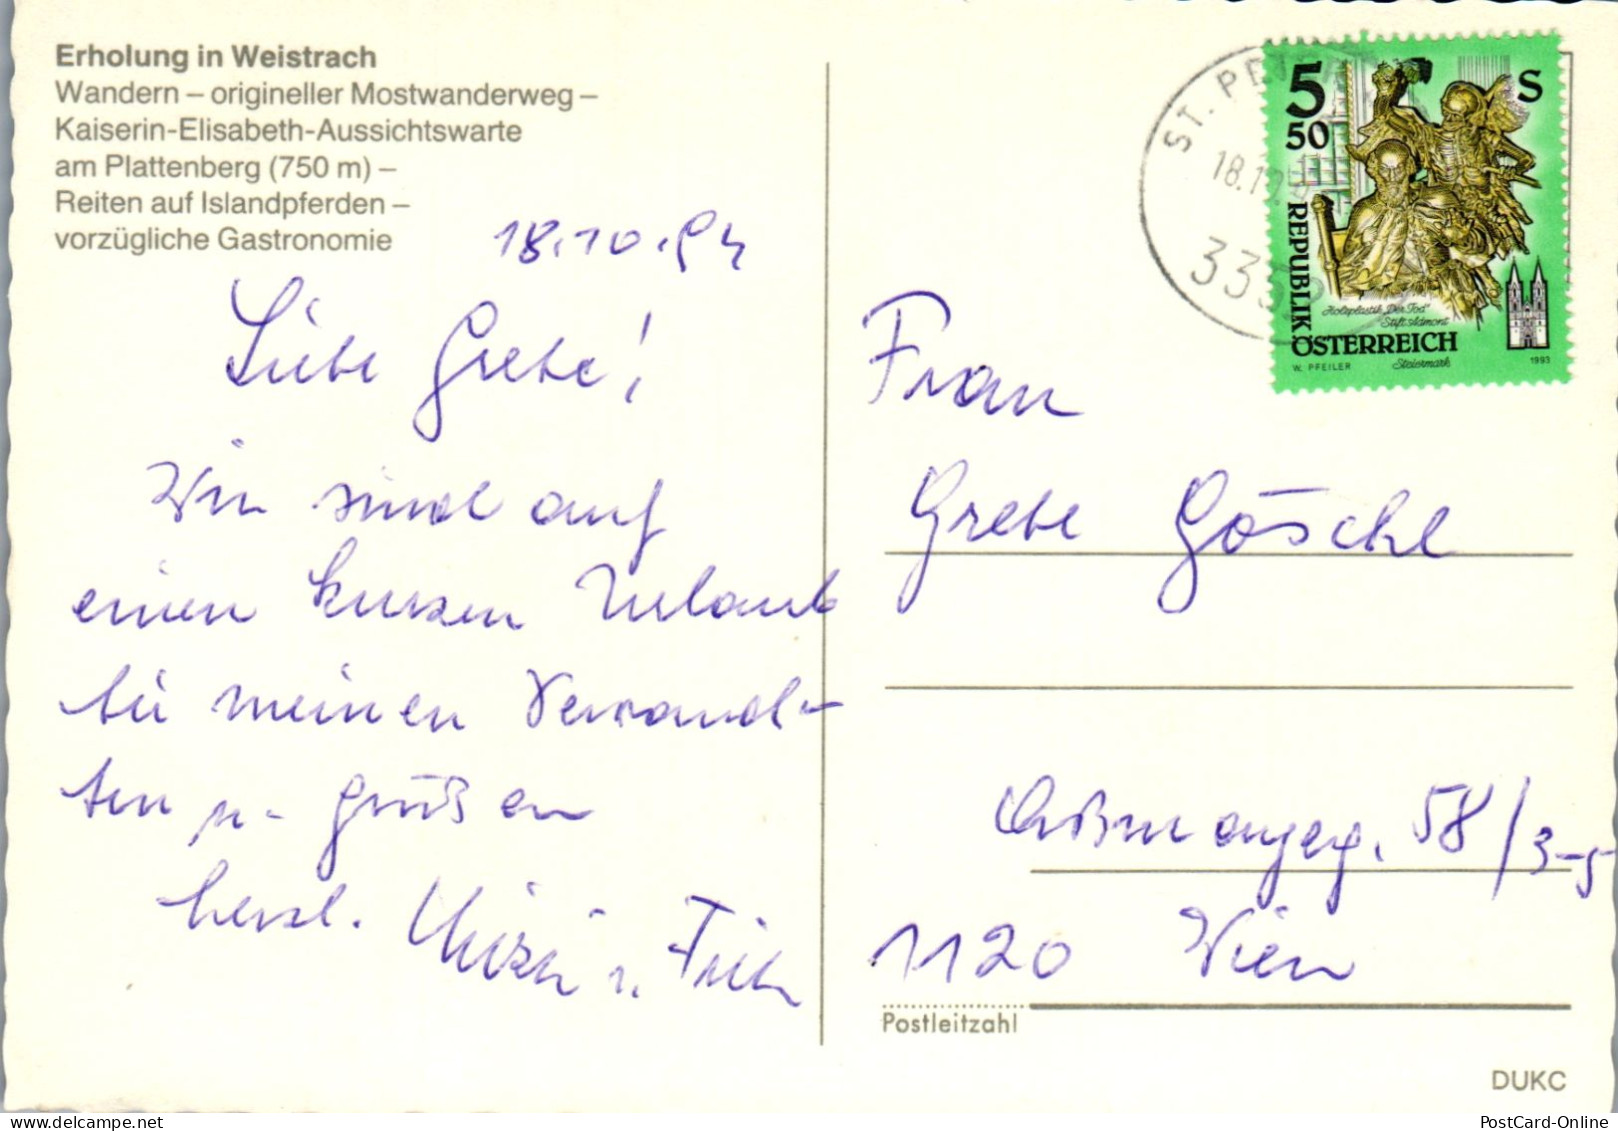 Erholung in Weistrach
Wandern – origineller Mostwanderweg –
Kaiserin-Elisabeth-Aussichtswarte
am Plattenberg (750 m) –
Reiten auf Islandpferden –
vorzügliche Gastronomie
18.10.94
Liebe Grete!
Wir sind auf
einen kurzen Urlaub
bei meinen Verwand-
ten u. grüßen
herzl. Mizzi u. Fritz
ST. PE
18.1
5 50 S
REPUBLIK
Holzplastik „Der Tod"
Stift Admont
ÖSTERREICH
Steiermark
W. PFEILER 1993
Frau
Grete Göschl
58/3-5
1120 Wien
Postleitzahl
DUKC
PostCard-Online